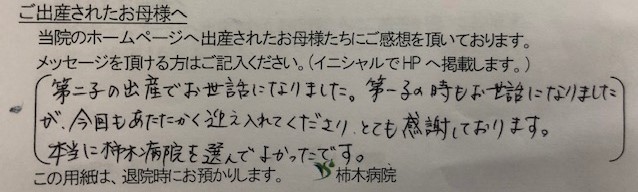 ご出産されたお母様へ
当院のホームページへ出産されたお母様たちにご感想を頂いております。
メッセージを頂ける方はご記入ください。(イニシャルでHPへ掲載します。)
第二子の出産でお世話になりました。第一子の時もお世話になりました
が、今回もあたたかく迎え入れてくださり、とても感謝しております。
本当に柿木病院を選んでよかったです。
この用紙は、退院時にお預かりします。 柿木病院